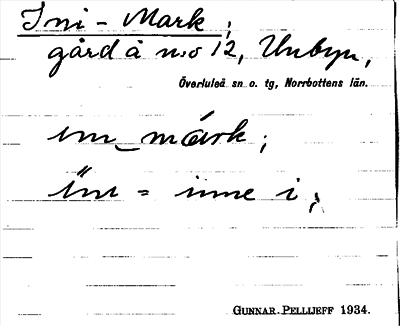 Ini-Mark;
gård å n:o 12, Unbyn,
Överluleå sn o. tg, Norrbottens län.
im‿márk;
ïm = inne i;
GUNNAR PELLIJEFF 1934.